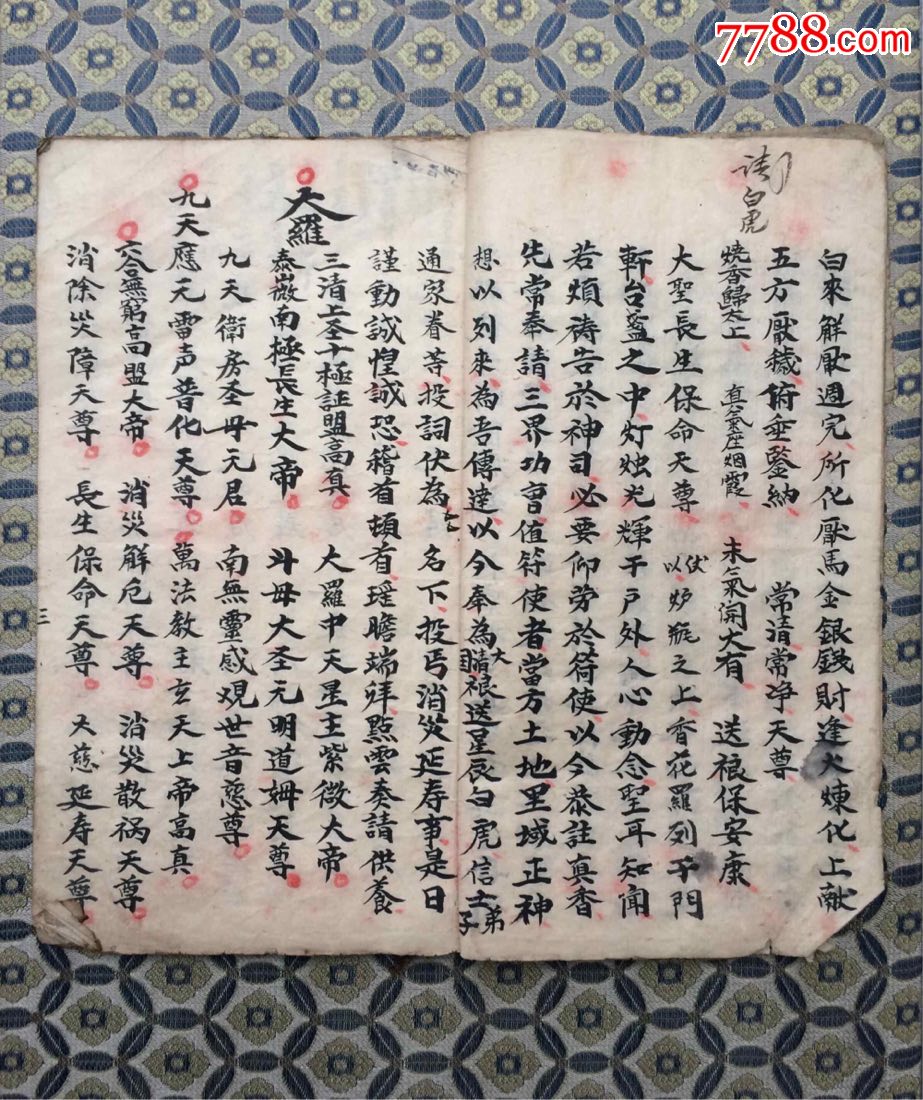 7788.com
請白虎
白來解厭週完、所化厭馬金銀錢財逢火煉化上献
五方厭穢俯垂鑒納 常清常净天尊
燒香歸太上、 直氣在烟霞 末氣開大有 送禳保安康
大聖長生保命天尊 伏以炉瓶之上香花羅列于門
軒台盞之中灯烛光輝于户外人心動念聖耳知聞
若煩祷告於神司必要仰劳於符使以今恭註真香
先當奉請三界功曹值符使者當方土地里域正神
想以列來為吾傳達以今奉為大清国禳送星辰白虎信士弟子
通家眷等投詞伏為 名下投丐消災延寿事是日
謹動誠惶誠恐稽首頓首瑶瞻瑞祥點雲奏請供養
大羅
三清上圣十極証盟高真 大羅中天星主紫微大帝
泰微南極長生大帝 斗母大圣元明道姆天尊
九天衛房圣母元君 南無靈感观世音慈尊
九天應元雷声普化天尊 萬法教主玄天上帝高真
六合無窮高盟大帝 消災解厄天尊 消災散祸天尊
消除災障天尊 長生保命天尊 大慈延寿天尊
三